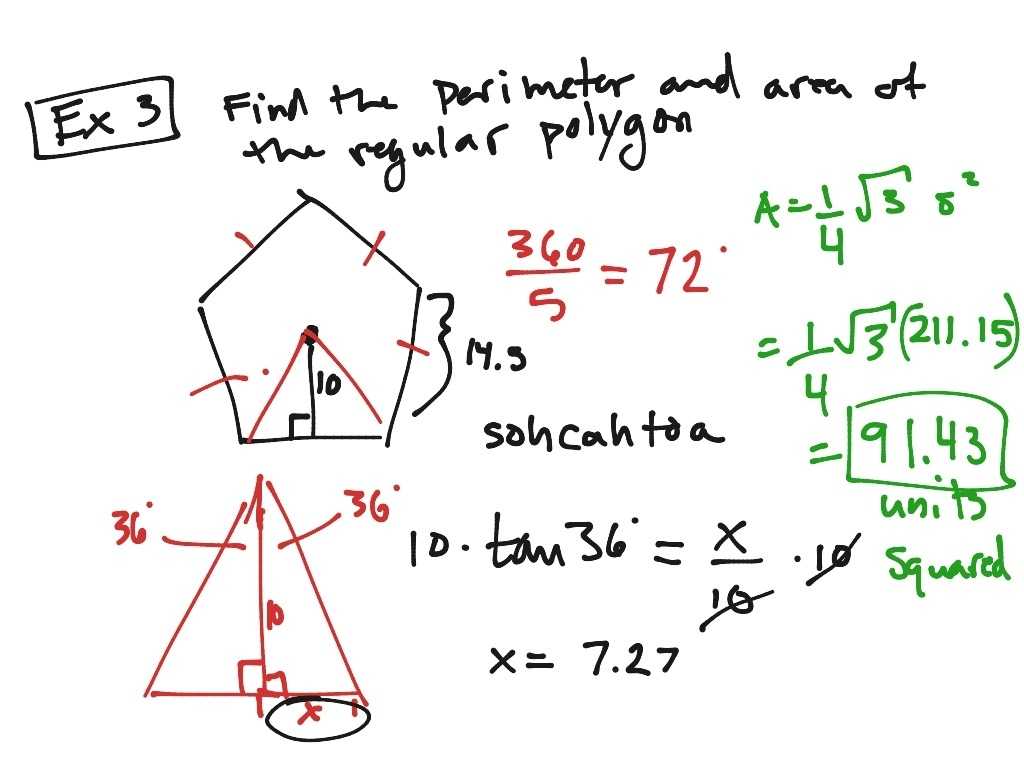 Ex 3
Find the perimeter and area of
the regular polygon
360/5 = 72°
14.5
10
sohcahtoa
36° 36°
10
x
10 · tan 36° = x/10 · 10
x = 7.27
A = 1/4 √3 s²
= 1/4 √3 (211.15)
= 91.43
units
squared